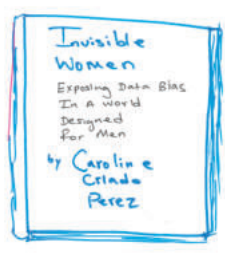 Invisible
Women
Exposing Data Bias
In A World
Designed
For Men
by Caroline
Criado
Perez